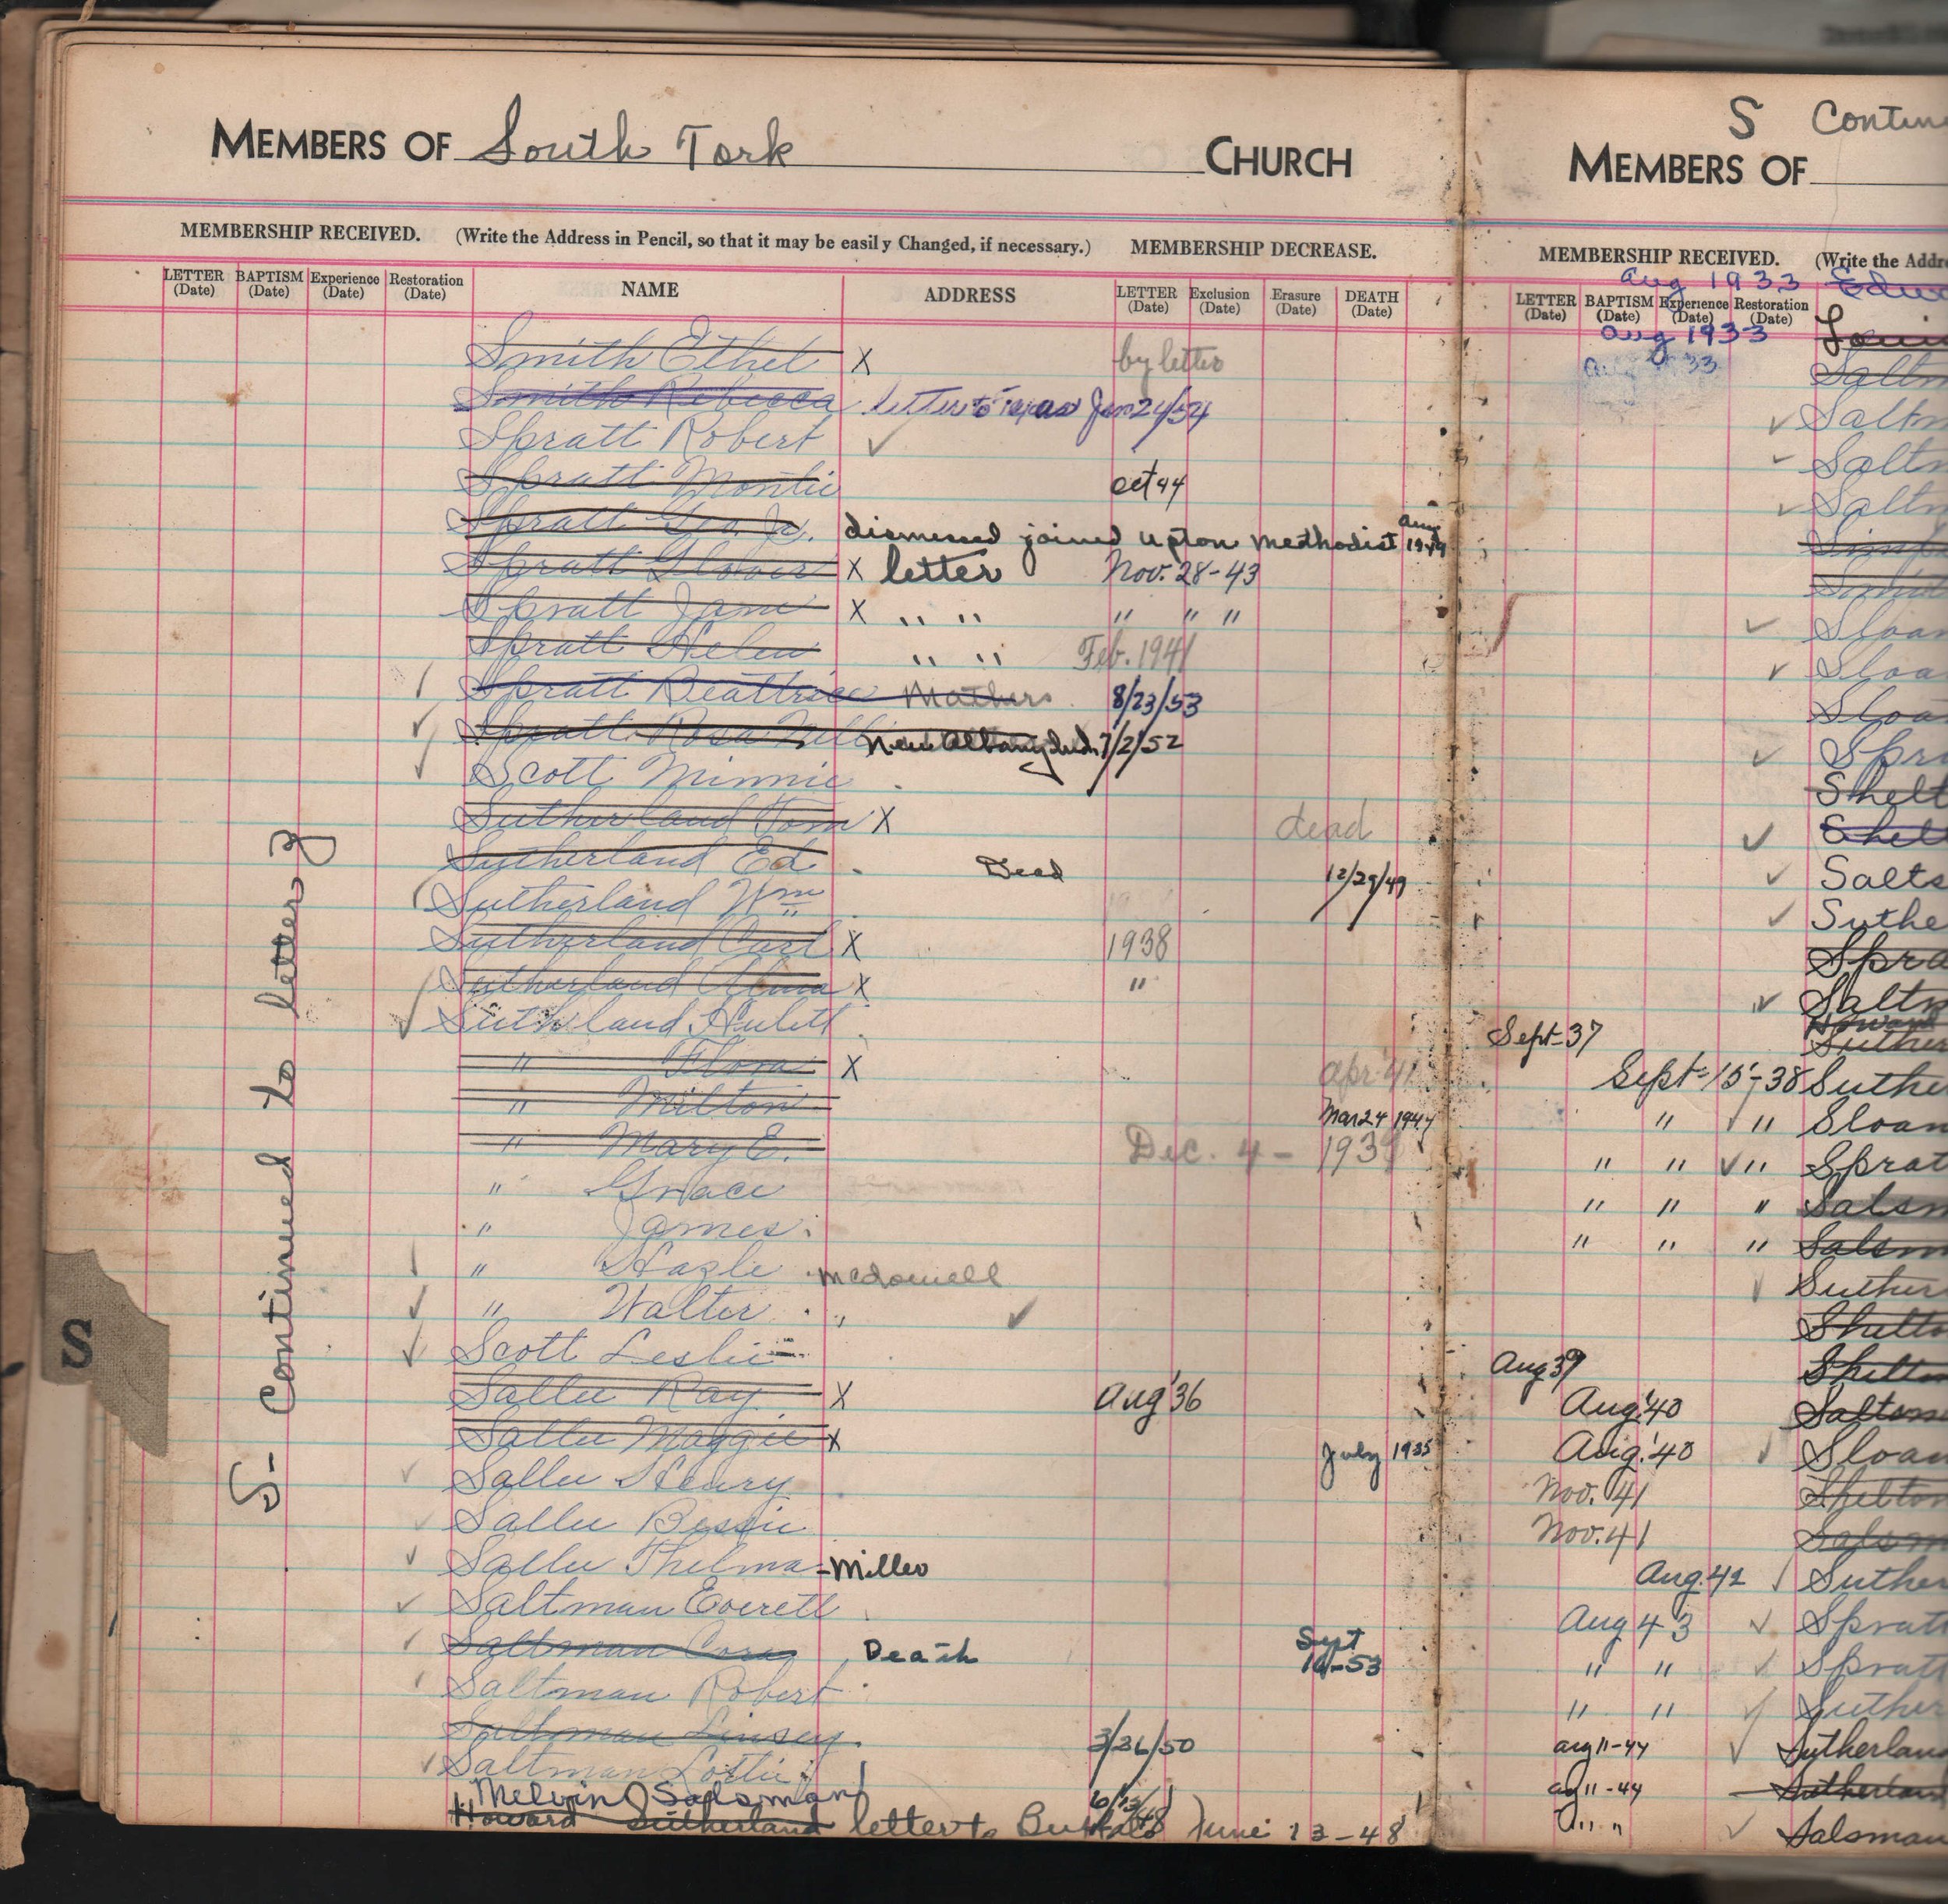 MEMBERS OF South Fork CHURCH
MEMBERSHIP RECEIVED. (Write the Address in Pencil, so that it may be easily Changed, if necessary.) MEMBERSHIP DECREASE.
LETTER (Date) BAPTISM (Date) Experience (Date) Restoration (Date) NAME ADDRESS LETTER (Date) Exclusion (Date) Erasure (Date) DEATH (Date)
Smith Ethel X by letter
Smith Rebecca letter to Texas Jan 24/54
Spratt Robert ✓
Spratt Montie Oct 44
Spratt Geo. Jr. dismessed joined Upton Methodist Aug 1949
Spratt Glover X letter Nov. 28-43
Spratt Jane X " " " " "
Spratt Helen " " Feb. 1941
Spratt Beattrice Mathers 8/23/53
Spratt Rosa Nell New Albany Ind. 7/2/52
✓ Scott Minnie
Sutherland Tom X dead
Sutherland Ed Dead 12/29/49
Sutherland Wm
Sutherland Carl X 1938
Sutherland Alma X "
✓ Sutherland Hulett
" Flora X Apr '41
" Milton Mar 24 1944
" Mary E. Dec. 4 - 1939
" Grace
" James
" Hazle McDowell
✓ " Walter " ✓
✓ Scott Leslie
Sallee Ray X Aug '36
Sallee Maggie X July 1935
✓ Sallee Henry
Sallee Bessie
✓ Sallee Thelma - Miller
✓ Saltman Everett
✓ Saltman Cora Death Sept 10-53
Saltman Robert
Saltman Linsey 3/26/50
✓ Saltman Lottie
Melvin Salsman 6/13/48
Howard Sutherland letter to Buffalo June 13-48
S- Continued to letter z
S
S Contin
MEMBERS OF
MEMBERSHIP RECEIVED. (Write the Addre
Aug 1933 Edw
LETTER (Date) BAPTISM (Date) Experience (Date) Restoration (Date)
Aug 1933 Louis
Aug 33 Saltm
✓ Saltm
✓ Saltm
✓ Saltm
Simp
Smit
✓ Sloan
✓ Sloa
Sloa
✓ Spra
Shelt
✓ Shel
✓ Salts
✓ Suthe
Spra
✓ Saltm
Howard
Sept-37 Suther
Sept-15-38 Suther
" ✓ " Sloan
" " ✓ " Sprat
" " " Salsm
" " " Salsm
✓ Suther
Shelto
Aug 39 Shelton
Aug. '40 Saltsm
Aug. '40 ✓ Sloan
Nov. 41 Shelton
Nov. 41 Salsm
Aug. 42 ✓ Suther
Aug 43 ✓ Spratt
" " ✓ Spratt
" " ✓ Suther
aug 11-44 ✓ Sutherlan
ag 11-44 Sutherland
" " ✓ Salsman